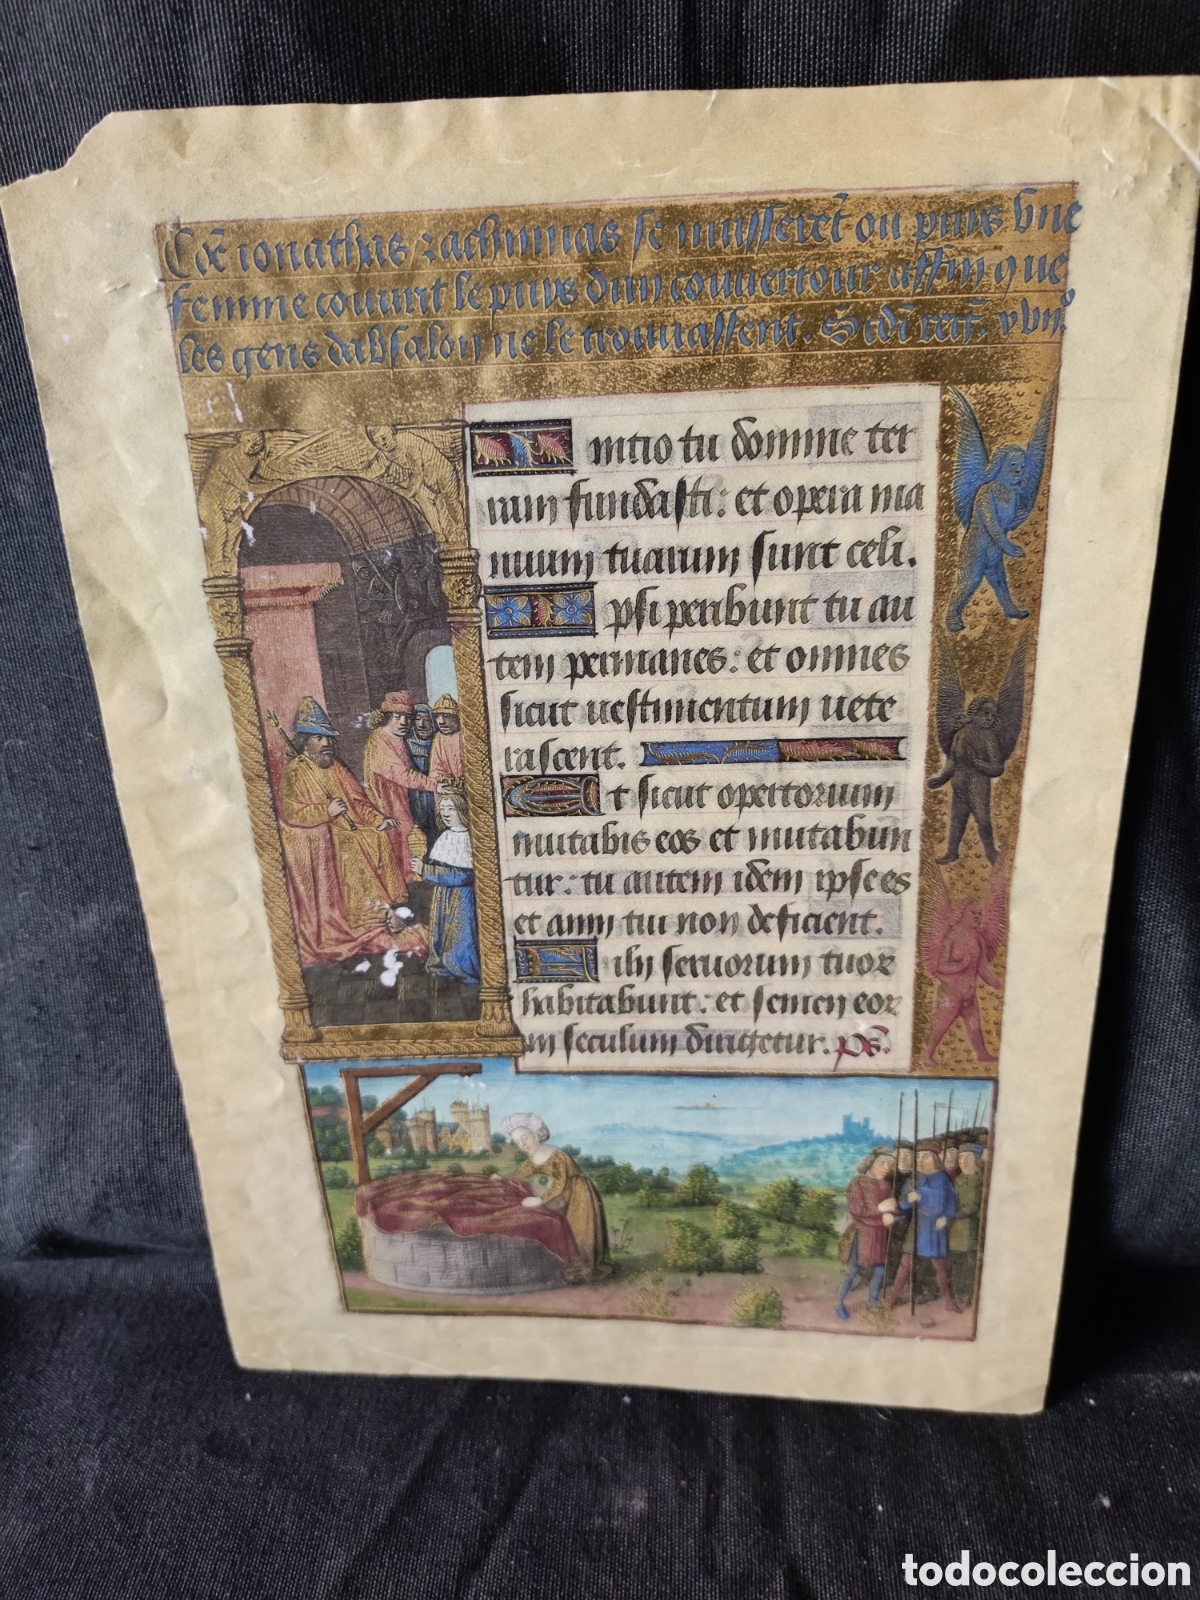 Cõe ionathas zachimas se musserēt ou puys vne
femme couurit le puys dun couuertour affin que
les gens dabsalon ne le trouuassent. Scd'i reg. xvii°
nitio tu domine ter
ram fundasti: et opera ma
nuum tuarum sunt celi.
psi peribunt tu au
tem permanes: et omnes
sicut uestimentum uete
rascent.
t sicut opertorium
mutabis eos et mutabun
tur: tu autem idem ipse es
et anni tui non deficient.
ilij seruorum tuor
habitabunt: et semen eor
in seculum dirigetur. ps.
todocoleccion